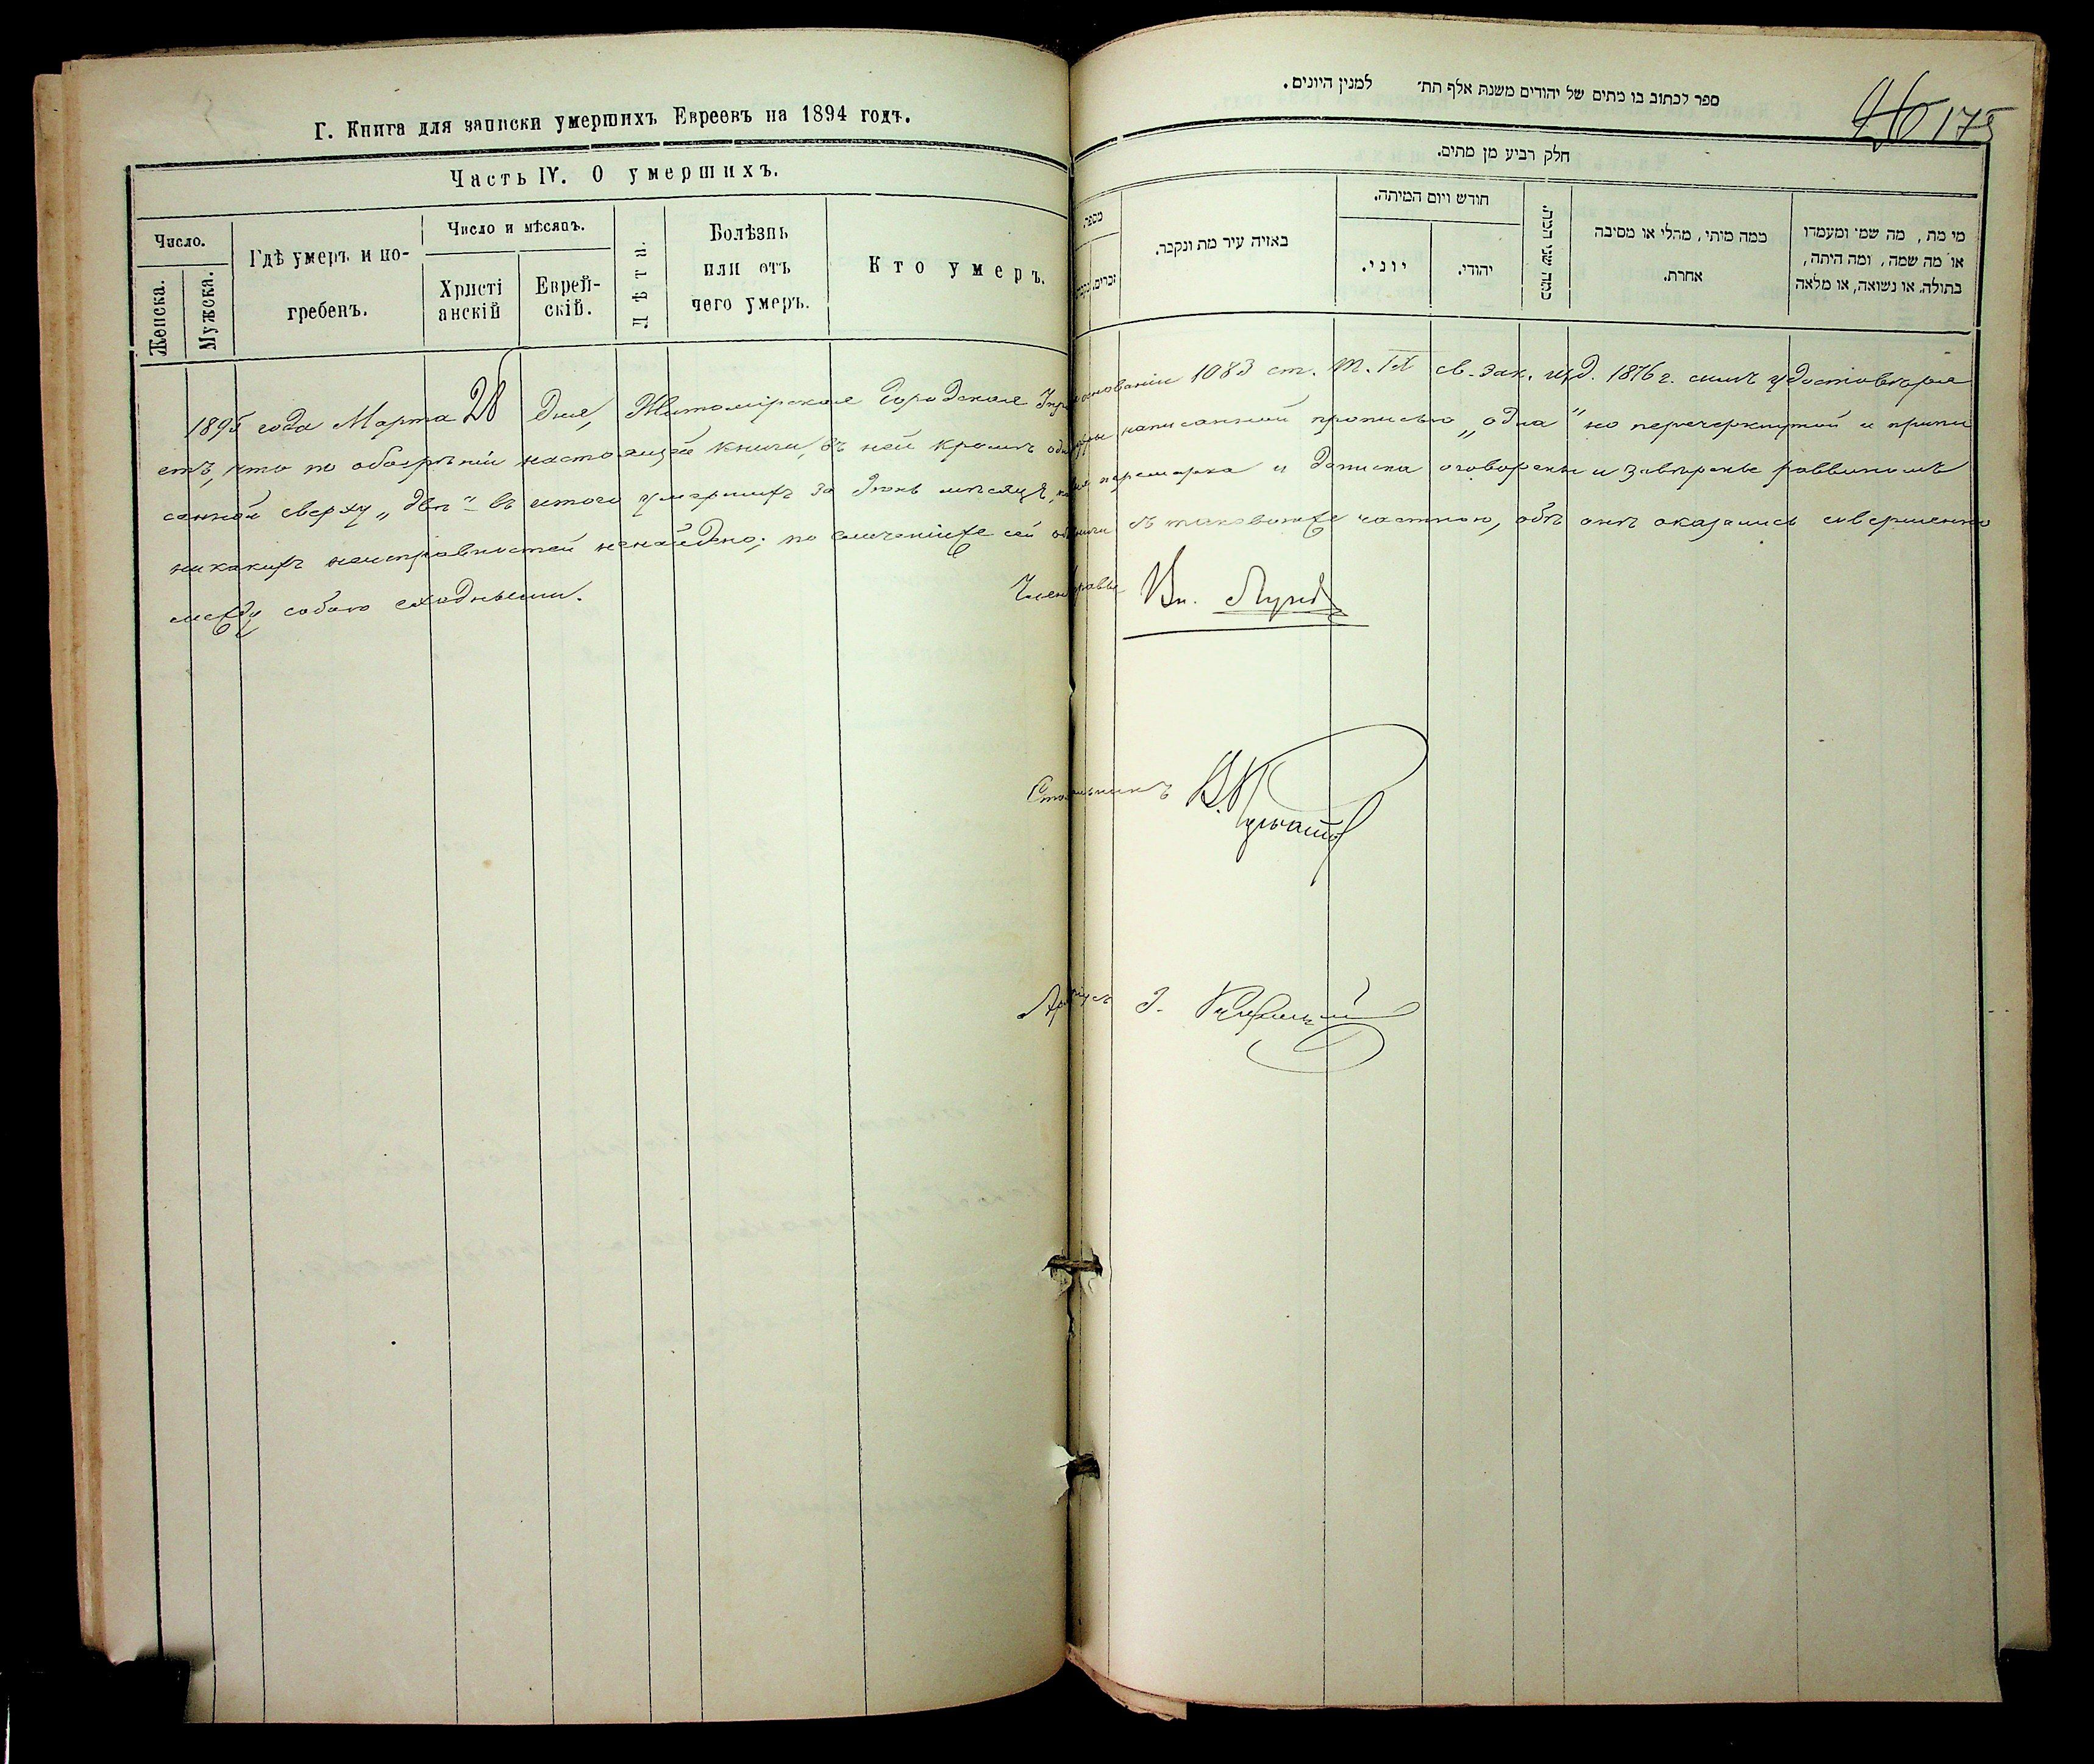 Г. Книга для записки умершихъ Евреевъ на 1894 годъ.
Часть IV. О умершихъ.
Число.
Женска.
Мужска.
Гдѣ умеръ и по-
гребенъ.
Число и мѣсяцъ.
Христі
анскій
Еврей-
скій.
Лѣта.
Болѣзнь
или отъ
чего умеръ.
Кто умеръ.
ספר לכתוב בו מתים של יהודים משנת אלף תת״ למנין היונים.
175
חלק רביע מן מתים.
מספר
זכרים.
באיזה עיר מת ונקבר.
חודש ויום המיתה.
יוני.
יהודי.
כמה שני חייו.
ממה מיתי, מחלי או מסיבה
אחרת.
מי מת, מה שמו ומעמדו
או מה שמה, ומה היתה,
בתולה. או נשואה, או מלאה
1895 года Марта 28 дня, Житомірская Городская основаніи 1083 ст. т. IX св. зак. изд. 1876 г. симъ удостовѣряя
етъ, что по обозрѣніи настоящей книги, въ ней кромѣ написанной прописью „одна" но перечеркнутой и припи
санной сверху „двѣ" въ итогѣ умершихъ за Іюнь мѣсяцъ, перемарка и записка оговорены и завѣрены раввиномъ
никакихъ неисправностей ненайдено; по сличеніи же сей съ таковою же частною, обѣ онѣ оказались совершенно
между собою сходными.
Членъ Управы
Столоначальникъ
Архиваріусъ